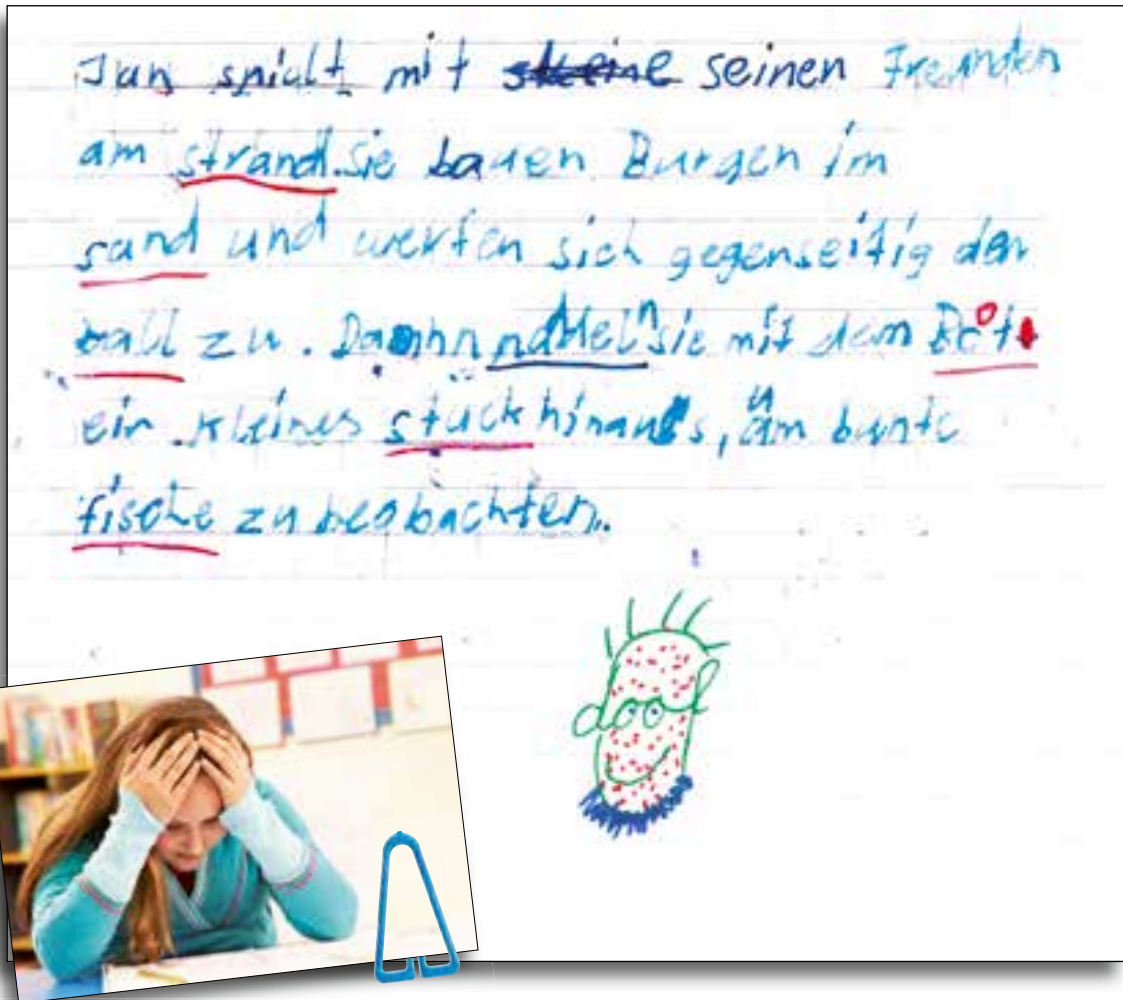 Jan spielt mit seinen Freunden
am strand. sie bauen Burgen im
sand und werfen sich gegenseitig den
ball zu. Dann sie mit dem Bot
ein kleines stück hinaus, um bunte
fische zu beobachten.
doof